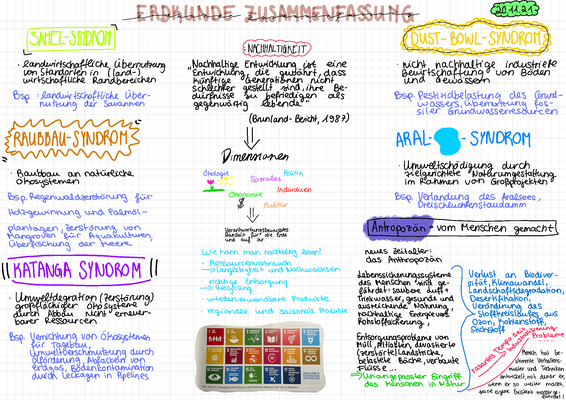 ERDKUNDE ZUSAMMENFASSUNG
20.11.21
SAHEL-SYNDROM
• landwirtschaftliche Übernutzung
von Standorten in (land-)
wirtschaftliche Randbereichen
Bsp.: landwirtschaftliche Über-
nutzung der Savannen
RAUBBAU-SYNDROM
• Raubbau an natürliche
Ökosystemen
Bsp. Regenwaldzerstörung für
Holzgewinnung und Palmöl-
plantagen, Zerstörung von
Mangroven für Aquakulturen,
Überfischung der Meere
KATANGA SYNDROM
• Umweltdegration (zerstörung)
großflächiger Ökosysteme
durch Abbau nicht erneuer-
barer Ressourcen
Bsp: Vernichtung von Ökosystemen
für Tagebau,
Umweltverschmutzung durch
Ölförderung, Abfackeln von
Erdgas, Bodenkontamination
durch Leckagen in Pipelines
NACHHALTIGKEIT
„Nachhaltige Entwicklung ist eine
Entwicklung, die gewährt, dass
künftige Generationen nicht
schlechter gestellt sind, ihre Be-
dürfnisse zu befriedigen als
gegenwärtig lebende"
(Brunland-Bericht, 1987)
Dimensionen
Ökologie
Politik
Soziales
Ökonomie
Individuen
$
Kultur
Verantwortungsbewusstes
Handeln für die Erde
und auf ihr
Wie kann man nachhaltig leben?
- Ressourcenverbrauch
- richtige Entsorgung
→ Recycling
- wiederverwendbare Produkte
- regionale und saisonale Produkte
DUST-BOWL-SYNDROM
• nicht nachhaltige industrielle
Bewirtschaftung von Böden
und Gewässern
Bsp. Pestizidbelastung des Grund-
wassers, Übernutzung fos-
siler Grundwasserressourcen
ARAL- -SYNDROM
• Umweltschädigung durch
zielgerichtete Naturumgestaltung
im Rahmen von Großprojekten
Bsp. Verlandung des Aralsees,
Dreischluchtenstaudamm
Antropozän - vom Menschen gemacht
neues Zeitalter:
Das Anthropozän
Lebenssicherungssysteme
des Menschen wird ge-
fährdet: saubere Luft +
Trinkwasser, gesunde und
ausreichende Nahrung,
nachhaltige Energie und
Rohstoffsicherung,
Entsorgungsprobleme von
Müll, Altlasten, verwüstete
(zerstörte) Landstriche,
belastete Bäche, verbaute
Flüsse...
→ Unangepasster Eingriff
des Menschen in Natur
Verlust an Biodiver-
sität, Klimawandel,
Landschaftsdegradation,
Desertifikation,
Veränderung des
Stoffkreislaufes aus
Ozon, Kohlenstoff,
Stickstoff
Probleme